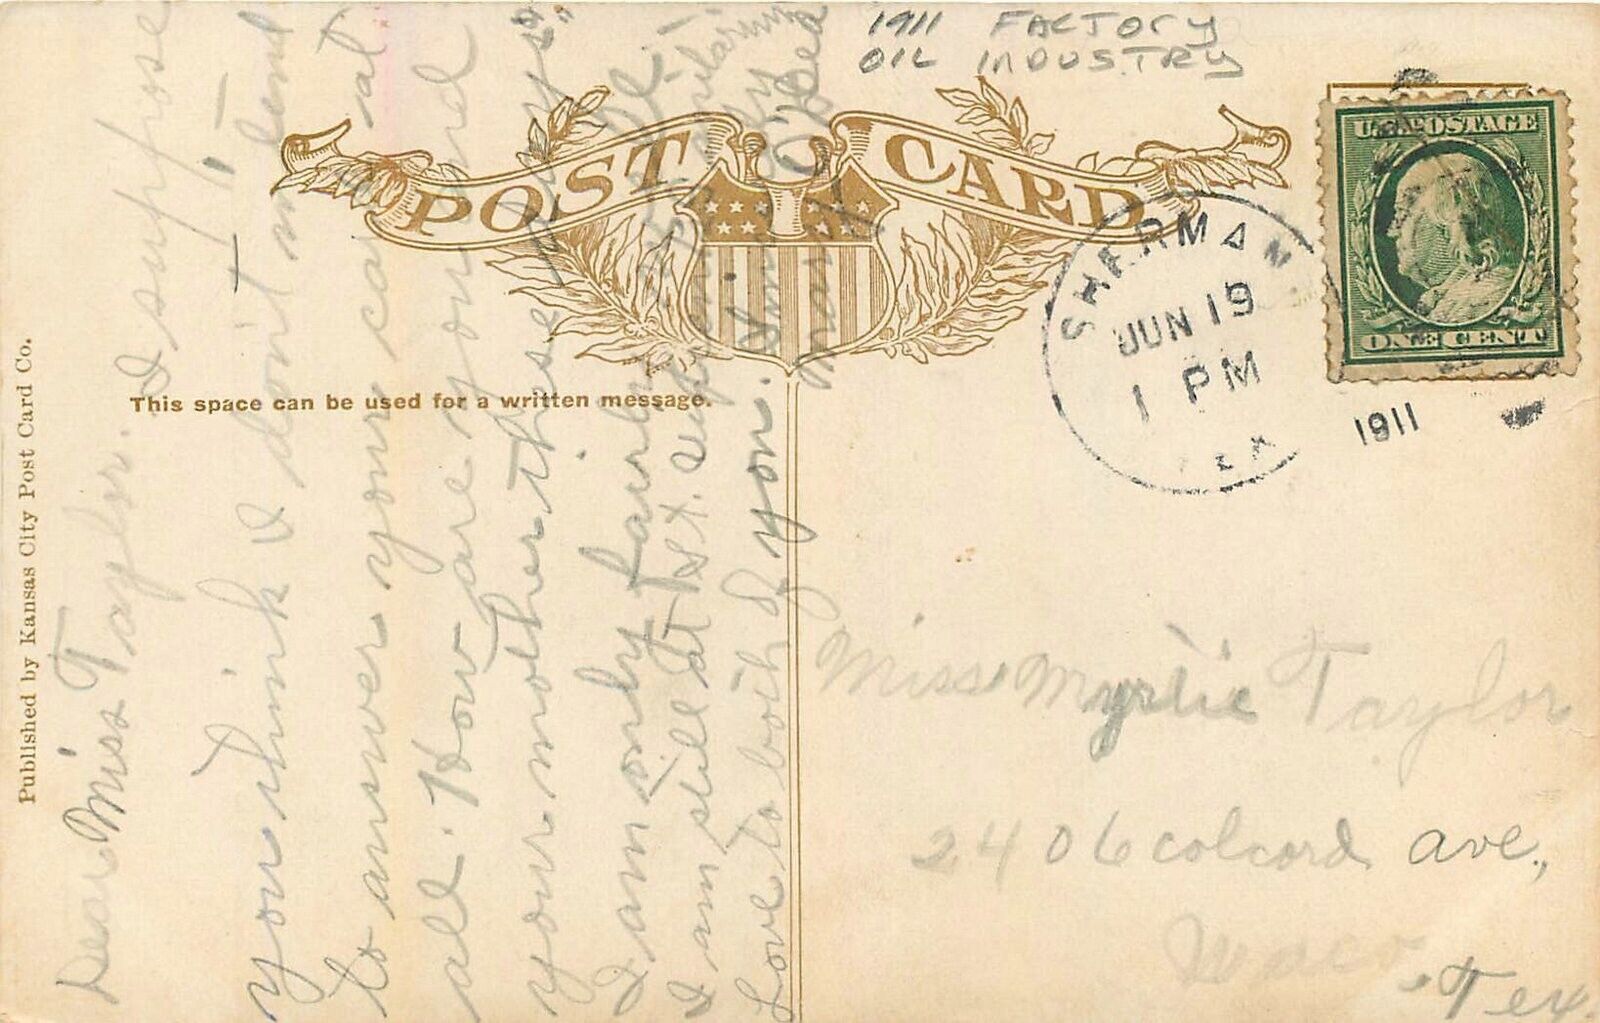 1911 FACTORY
OIL INDUSTRY
POST CARD
U.S. POSTAGE
ONE CENT
SHERMAN
JUN 19
1 PM
TEX
1911
This space can be used for a written message.
Published by Kansas City Post Card Co.
Dear Miss Taylor. I suppose
you think I don't intend
to answer your card at
all. How are you and
your mother these days?
I am only fairly well
I am still at 1st.
Love to both of you.
Miss Myrtie Taylor
2406 Colcord ave.,
Waco,
Tex.